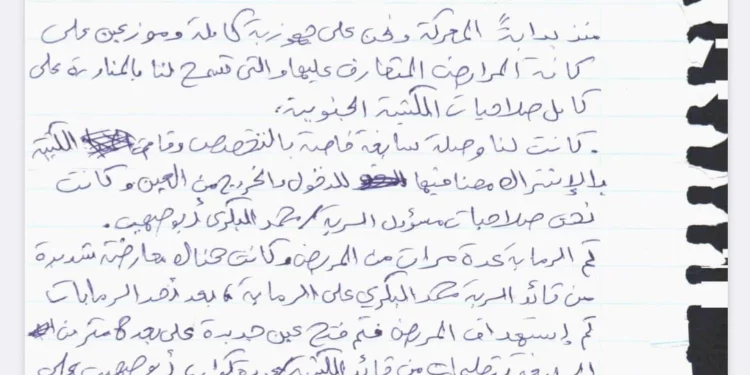 منذ بدايةً المعركة ونحن على جهوزية كاملة وموزعين على
كافة المرابض المتعارف عليها والتي تسمح لنا بالمناورة على
كامل صلاحيات الكتيبة الجنوبية،
. كانت لنا وصلة سابقة خاصة بالتخصص وقامت الكتيبة
بالإشتراك معنا فيها للدخول والخروج من العين وكانت
تحت صلاحيات مسؤول السرية / محمد البكري أبو صهيب.
تم الرماية عدة مرات من المربض وكانت هناك معارضة شديدة
من قائد السرية محمد البكري على الرماية، بعد أحد الرمايات
تم إستهداف المربض فتم فتح عين جديدة على بعد 8 متر من
من قائد الكتيبة أبو صهيب على